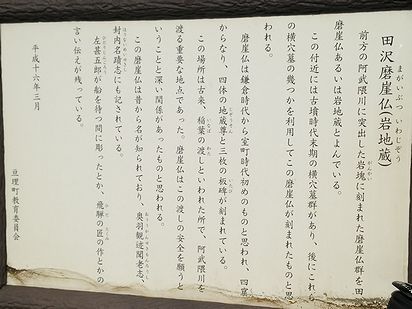 田沢磨崖仏(岩地蔵)
まがいぶつ いわじぞう
前方の阿武隈川に突出した岩塊に刻まれた磨崖仏群を田
磨崖仏あるいは岩地蔵とよんでいる。
この付近には古墳時代末期の横穴墓群があり、後にこれら
の横穴墓の幾つかを利用してこの磨崖仏が刻まれたものと思
われる。
磨崖仏は鎌倉時代から室町時代初めのものと思われ、四窟
からなり、四体の地蔵尊と三枚の板碑が刻まれている。
この場所は古来、稲葉の渡しといわれた所で、阿武隈川を
渡る重要な地点であった。磨崖仏はこの渡しの安全を願うと
いうことと深い関係があったものと思われる。
この磨崖仏は昔から名が知られており、奥羽観迹聞老志、
封内名蹟志にも記されている。
左甚五郎が船を待つ間に彫ったとか、飛騨の匠の作とかの
言い伝えが残っている。
平成十六年三月
亘理町教育委員会